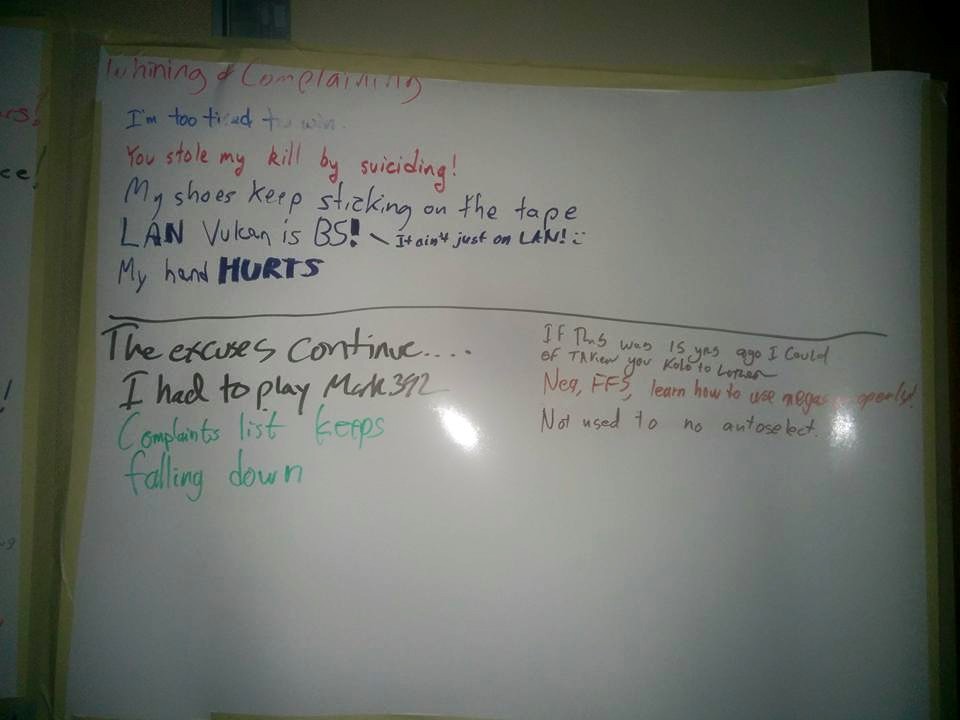 Whining & Complaining
I'm too tired to win.
You stole my kill by suiciding!
My shoes keep sticking on the tape
LAN Vulcan is BS! \ It ain't just on LAN! :)
My hand HURTS
The excuses continue....
I had to play Mark392
Complaints list keeps
falling down
If This was 15 yrs ago I Could
of TAKen you Kolo to
Neg, FFS, learn how to use megas properly!
Not used to no autoselect.
rs!
ce!
!